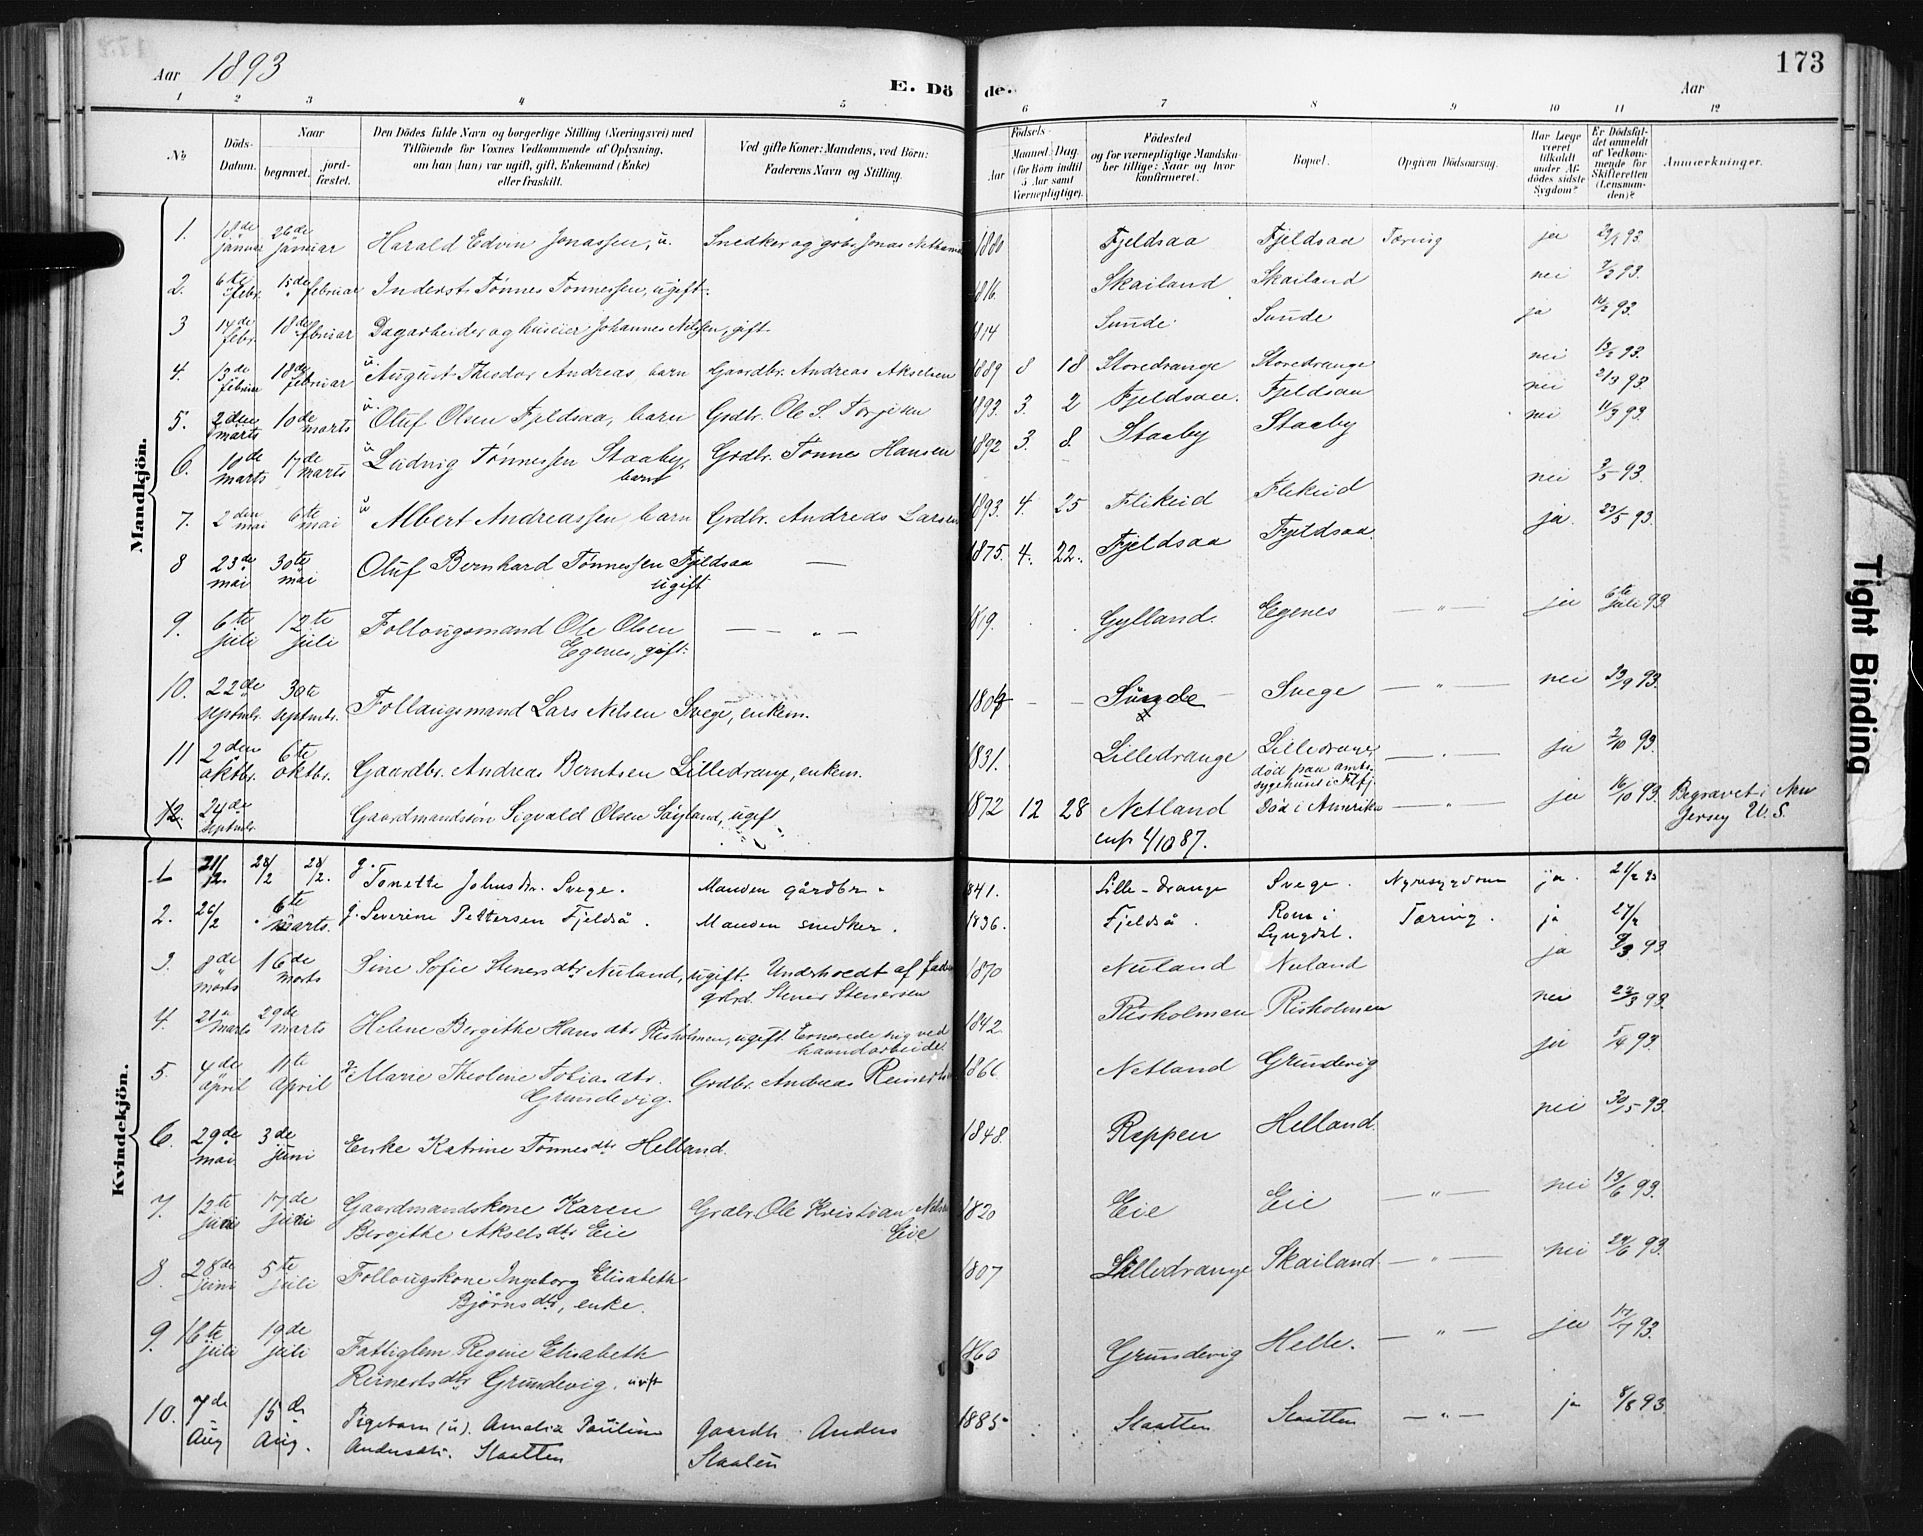 Aar 1893
E. Dö de.
Aar
173
1 2 3 4 5 6 7 8 9 10 11 12
No
Döds-Datum.
Naar
begravet.
jord-fæstet.
Den Dödes fulde Navn og borgerlige Stilling (Næringsvei) med
Tilföiende for Voxnes Vedkommende af Oplysning,
om han (hun) var ugift, gift, Enkemand (Enke)
eller fraskilt.
Ved gifte Koner: Mandens, ved Börn:
Faderens Navn og Stilling.
Födsels-
Aar
Maaned Dag
(for Børn indtil
5 Aar samt
Værnepligtige).
Födested
og for værnepligtige Mandska-
ber tillige: Naar og hvor
konfirmeret.
Bopæl.
Opgiven Dödsaarsag.
Har Læge
været
tilkaldt
under Af-
dödes sidste
Sygdom?
Er Dödsfal-
det anmeldt
af Vedkom-
mende for
Skifteretten
(Lensman-
den)?
Anmærkninger.
Mandkjön.
1. 18de januar 26de januar Harald Edvin Jonassen, u. Snedker og gbr. Jonas 1880 Fjeldsaa Fjeldsaa Tæring ja 93.
2. 6te febr. 15de februar Inderst Tønnes Tønnessen, ugift. 1816. Skailand Skailand nei 93.
3 14de febr. 18de februar Dagarbeider og huseier Johannes Nelsen, gift 1814 Sunde Sunde ja 93.
4. 13de februar 18de februar u August Theodor Andreas barn Gaardbr. Andreas Akselsen 1889 8 18 Storedrange Storedrange nei 13/2 93.
5. 2den marts 10de marts u. Oluf Olsen Fjeldsaa, barn Grdbr. Ole S. Torjesen 1893. 3. 2 Fjeldsaa. Fjeldsaa nei 93.
6. 10de marts 17de marts u Ludvig Tønnessen Staaby, barn Grdbr. Tønnes Hansen 1892 3. 8 Staaby Staaby nei 93.
7. 2den mai 6te mai u Albert Andreassen, barn Grdbr. Andreas Larsen 1893. 4. 25 Flikeid Flikeid nei 93.
8 23de mai 30te mai Oluf Bernhard Tønnessen Fjeldsaa ugift — 1875. 4. 22. Fjeldsaa Fjeldsaa. ja. 23/5 93.
9. 6te juli 12te juli Follougsmand Ole Olsen Egenes, gift. — " — 1819. Gylland. Egenes — " — ja 6te juli 93
10. 22de septmbr. 30te septmbr. Follaugsmand Lars Nelsen Svege, enkem. Sunde Svege — " — nei 23/9 93.
11 2den oktbr. 6te oktbr. Gaardbr. Andreas Berntsen Lilledrange, enkem. 1831. Lilledrange Lilledrange, død paa amts-sygehuset i — " — ja 2/10 93.
12. 24de septmbr. Gaardmandsøn Sigvald Olsen ugift 1872 12 28 Netland 4/10 87. Død i Amerika — " — ja 16/10 93. Begravet i New Jersey U.S.
Kvindekjön.
1 21/2. 28/2 28/2. g. Tonette Johnsdtr. Svege. Manden gårdbr. 1841. Lille-drange Svege. Nyresygdom ja. 21/2 93
2. 26/2 6te marts. g. Severine Pettersen Fjeldså Manden snedker. 1836. Fjeldså Rom i Lyngdal. Tæring. ja 27/2
3. 8de marts 16de marts Sine Sofie Stenersdtr Nuland, ugift Underholdt af fader grbr. Stener Stenersen 1870 Nuland Nuland ja 93.
4. 21de marts 29de marts Helene Birgithe Hansdtr Risholmen, ugift. Ernærede sig ved haandarbeide. 1842. Risholmen Risholmen nei 23/3 93.
5. 4de april 11te april g. Marie Theoline Tobiasdtr. Grundevig. Grdbr. Andreas 1866 Netland Grundevig ja 5/4 93.
6. 29de mai 3de juni Enke Katrine Tønnesdtr Helland. 1848. Reppen Helland. nei 30/5 93.
7. 12te juni 17de juni Gaardmandskone Karen Birgithe Akselsdtr Eie Grdbr. Ole Kristian Eie 1820 Eie Eie — " — nei 13/6 93.
8. 28de juni 5te juli Follougskone Ingeborg Elisabeth Bjørnsdtr, enke. 1807 Lilledrange Skailand — " — nei 93.
9. 16te juli 19de juli Fattiglem Regine Elisabeth Reinertsdtr Grundevig, ugift 1860 Grundevig Helle. — " — ja 17/7 93.
10. 7de Aug 15de Aug. Pigebarn (u). Amalia Pauline Andersdtr. Staatten Gaardb. Anders 1885 Staatten Staatten — " — ja 8/8 93.
Tight Binding